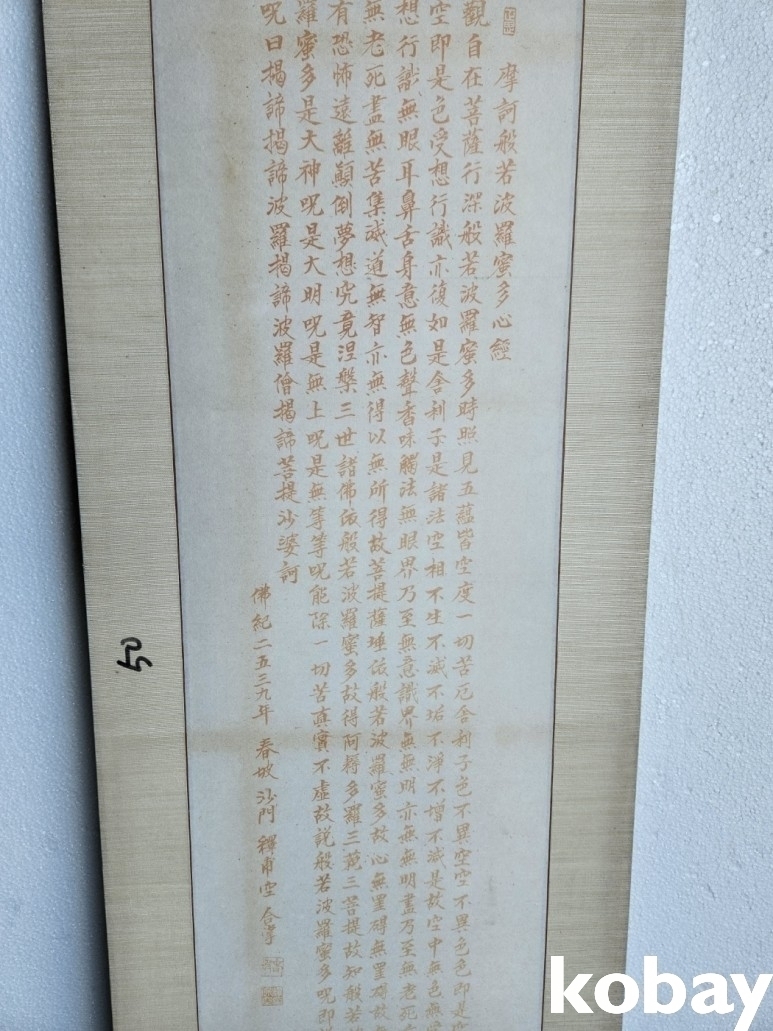 摩訶般若波羅蜜多心經
觀自在菩薩行深般若波羅蜜多時照見五蘊皆空度一切苦厄舍利子色不異空空不異色色即是
空即是色受想行識亦復如是舍利子是諸法空相不生不滅不垢不淨不增不減是故空中無色無
想行識無眼耳鼻舌身意無色聲香味觸法無眼界乃至無意識界無無明亦無無明盡乃至無老死
無老死盡無苦集滅道無智亦無得以無所得故菩提薩埵依般若波羅蜜多故心無罣碍無罣碍故
有恐怖遠離顚倒夢想究竟涅槃三世諸佛依般若波羅蜜多故得阿耨多羅三藐三菩提故知般若
羅蜜多是大神呪是大明呪是無上呪是無等等呪能除一切苦眞實不虛故說般若波羅蜜多呪即
呪曰揭諦揭諦波羅揭諦波羅僧揭諦菩提沙婆訶
佛紀二五三九年 春坡 沙門 釋甫空 合掌
50
kobay